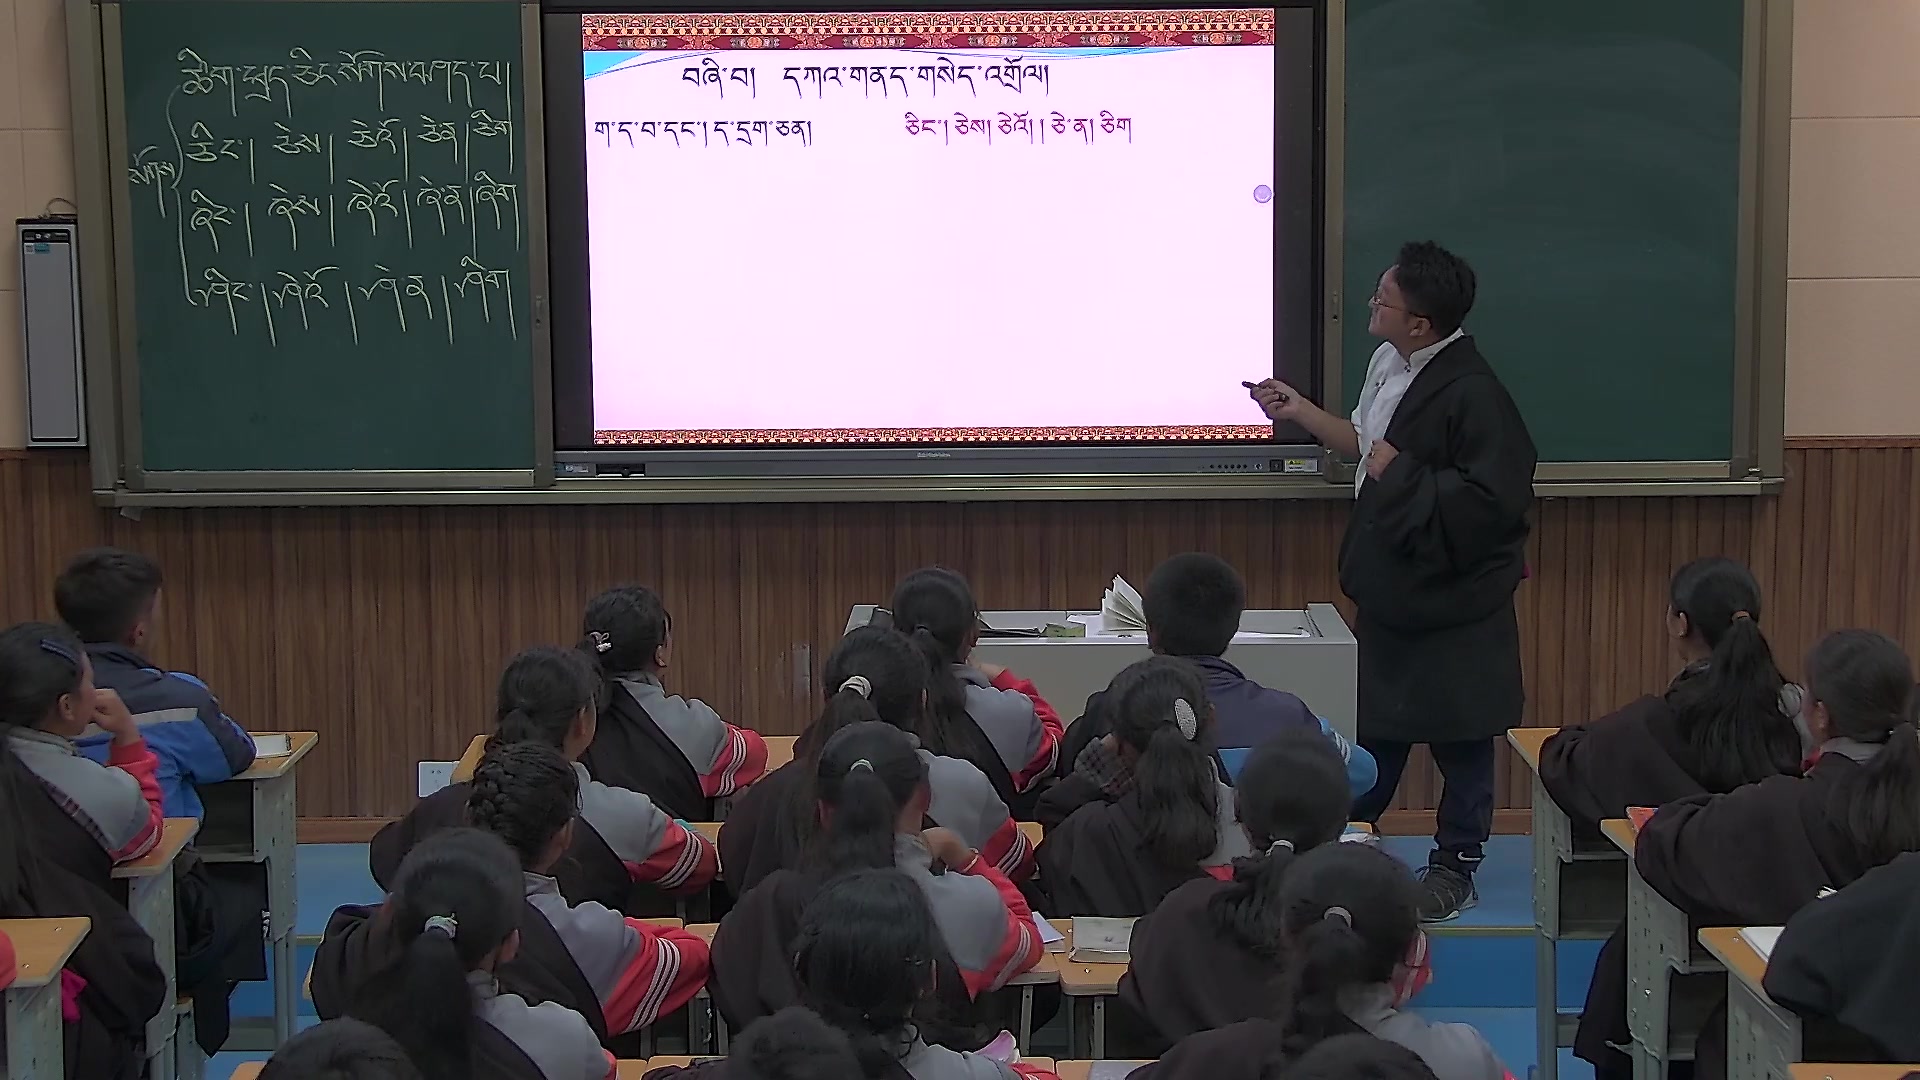 ཚིག་ཕྲད་ཅིང་སོགས་བཤད་པ།
ཅིང་། ཅེས། ཅེའོ། ཅེ་ན། ཅིག
སོགས།
ཞིང་། ཞེས། ཞེའོ། ཞེ་ན། ཞིག
ཤིང་། ཤེའོ། ཤེ་ན། ཤིག
བཞི་བ། དཀའ་གནད་གསེད་འགྲོལ།
ག་ད་བ་དང་། ད་དྲག་ཅན། ཅིང་། ཅེས། ཅེའོ། ། ཅེ་ན། ཅིག